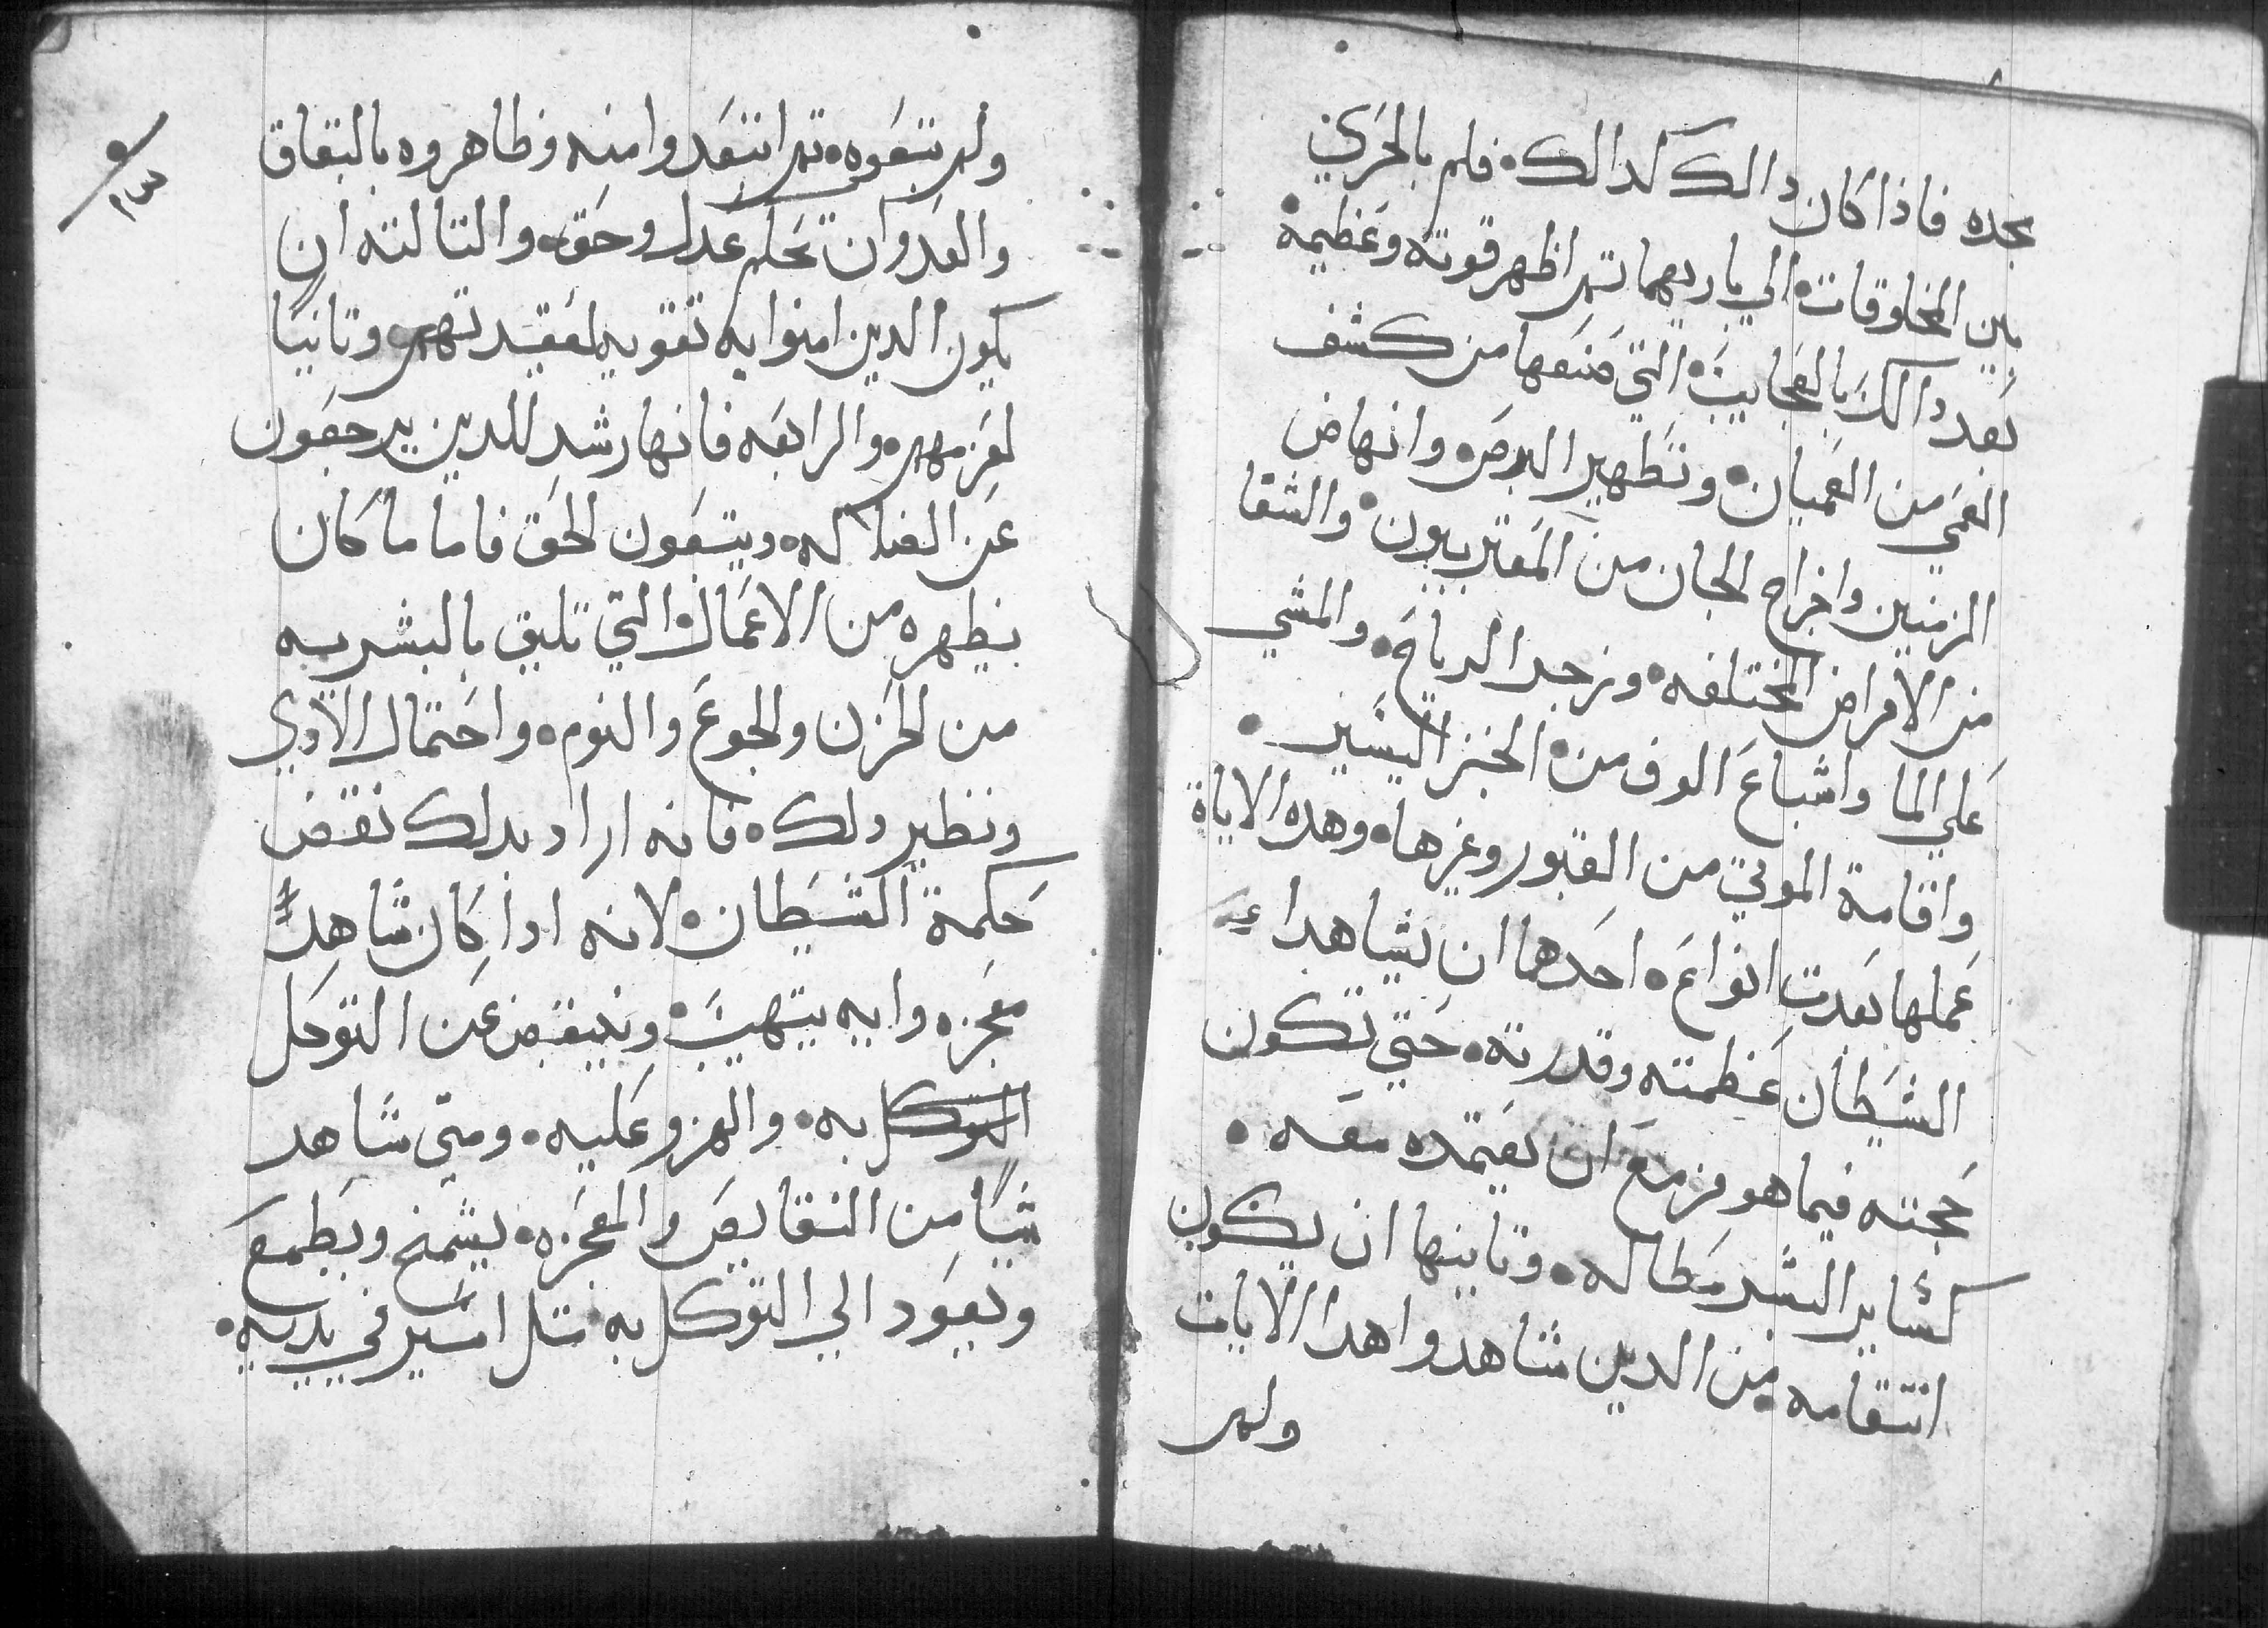 بحده فاذا كان دالك كدالك فلم بالحري
بين المخلوقات الي باريهما تم اظهر قوته وعظيمة
بعد دالك بالعجايب التي صنعها من كشف
العمي من العميان وتطهير البرص وانهاض
الزمنين واخراج الجان من المعتريين والشفا
من الامراض المختلفه وزجد الرياح والمشي
علي الما واشباع الوف من الخبز اليسير
واقامة الموتي من القبور وغيرها وهده الاياة
عملها بعدت انواع احدها ان يشاهد اء
الشيطان عظمته وقدرته حتي تكون
حجته فيما هو مزمع ان يعتمده معه
كساير البشر مطاله وتانيها ان يكون
انتقامه من الدين شاهدوا هدا الايات
ولم
ولم يتبعوه تم ابتعدوا منه وظاهروه بالنفاق
والعدوان تحكم عدل وحق والتالته ان
يكون الدين امنوا به تقويه لعقيدتهم وتانيا
لعزمهم والرابعه فانها رشد للدين يرجعون
عن الضلاله ويتبعون الحق فاما ما كان
يظهره من الاعمال التي تليق بالبشريه
من الحزن والجوع والنوم واحتمال الادي
ونظير دلك فانه اراد بدلك نقض
حكمة الشيطان لانه ادا كان شاهد
معجزه وايه يتهيب وينقبض عن التوحل
التوكل به والهزو عليه ومتي شاهد
شيا من النقايص والمعجزه يشمخ ويطمع
ويعود الي التوكل به متل اسير في يديه
٩
١٣